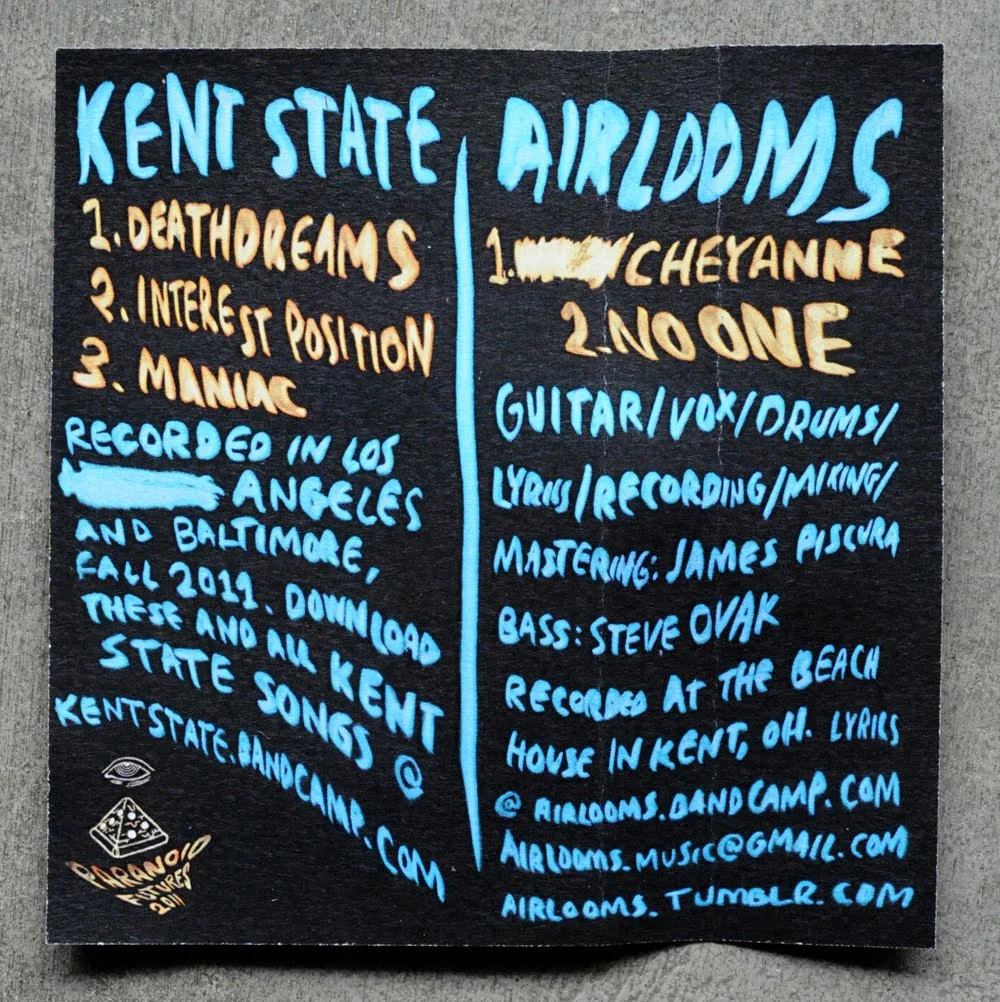 KENT STATE
1. DEATHDREAMS
2. INTEREST POSITION
3. MANIAC
RECORDED IN LOS
ANGELES
AND BALTIMORE,
FALL 2011. DOWNLOAD
THESE AND ALL KENT
STATE SONGS @
KENTSTATE.BANDCAMP.COM
PARANOID
FUTURES
2011
AIRLOOMS
1. /CHEYANNE
2. NO ONE
GUITAR/VOX/DRUMS/
LYRICS/RECORDING/MIXING/
MASTERING: JAMES PISCURA
BASS: STEVE OVAK
RECORDED AT THE BEACH
HOUSE IN KENT, OH. LYRICS
@ AIRLOOMS.BANDCAMP.COM
AIRLOOMS.MUSIC@GMAIL.COM
AIRLOOMS.TUMBLR.COM